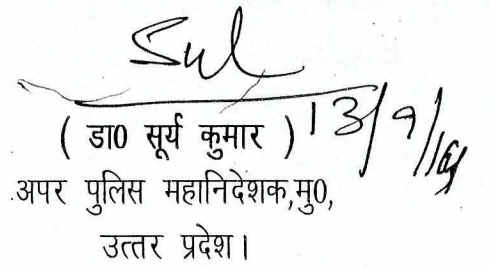 ( डा0 सूर्य कुमार )
अपर पुलिस महानिदेशक,मु0,
उत्तर प्रदेश।